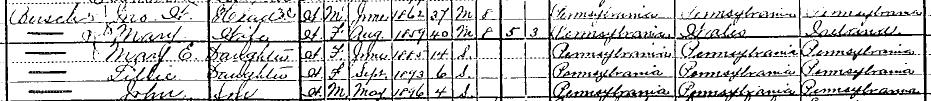 Jno. H. Head W. M. June 1862 37 M 8 Pennsylvania Pennsylvania Pennsylvania
— Mary Wife W. F. Aug. 1859 40 M 8 5 3 Pennsylvania Wales Ireland
— Mary E. Daughter W. F. June 1885 14 S. Pennsylvania Pennsylvania Pennsylvania
— Lillie Daughter W. F. Sept. 1893 6 S. Pennsylvania Pennsylvania Pennsylvania
— John Son W. M. May 1896 4 S. Pennsylvania Pennsylvania Pennsylvania